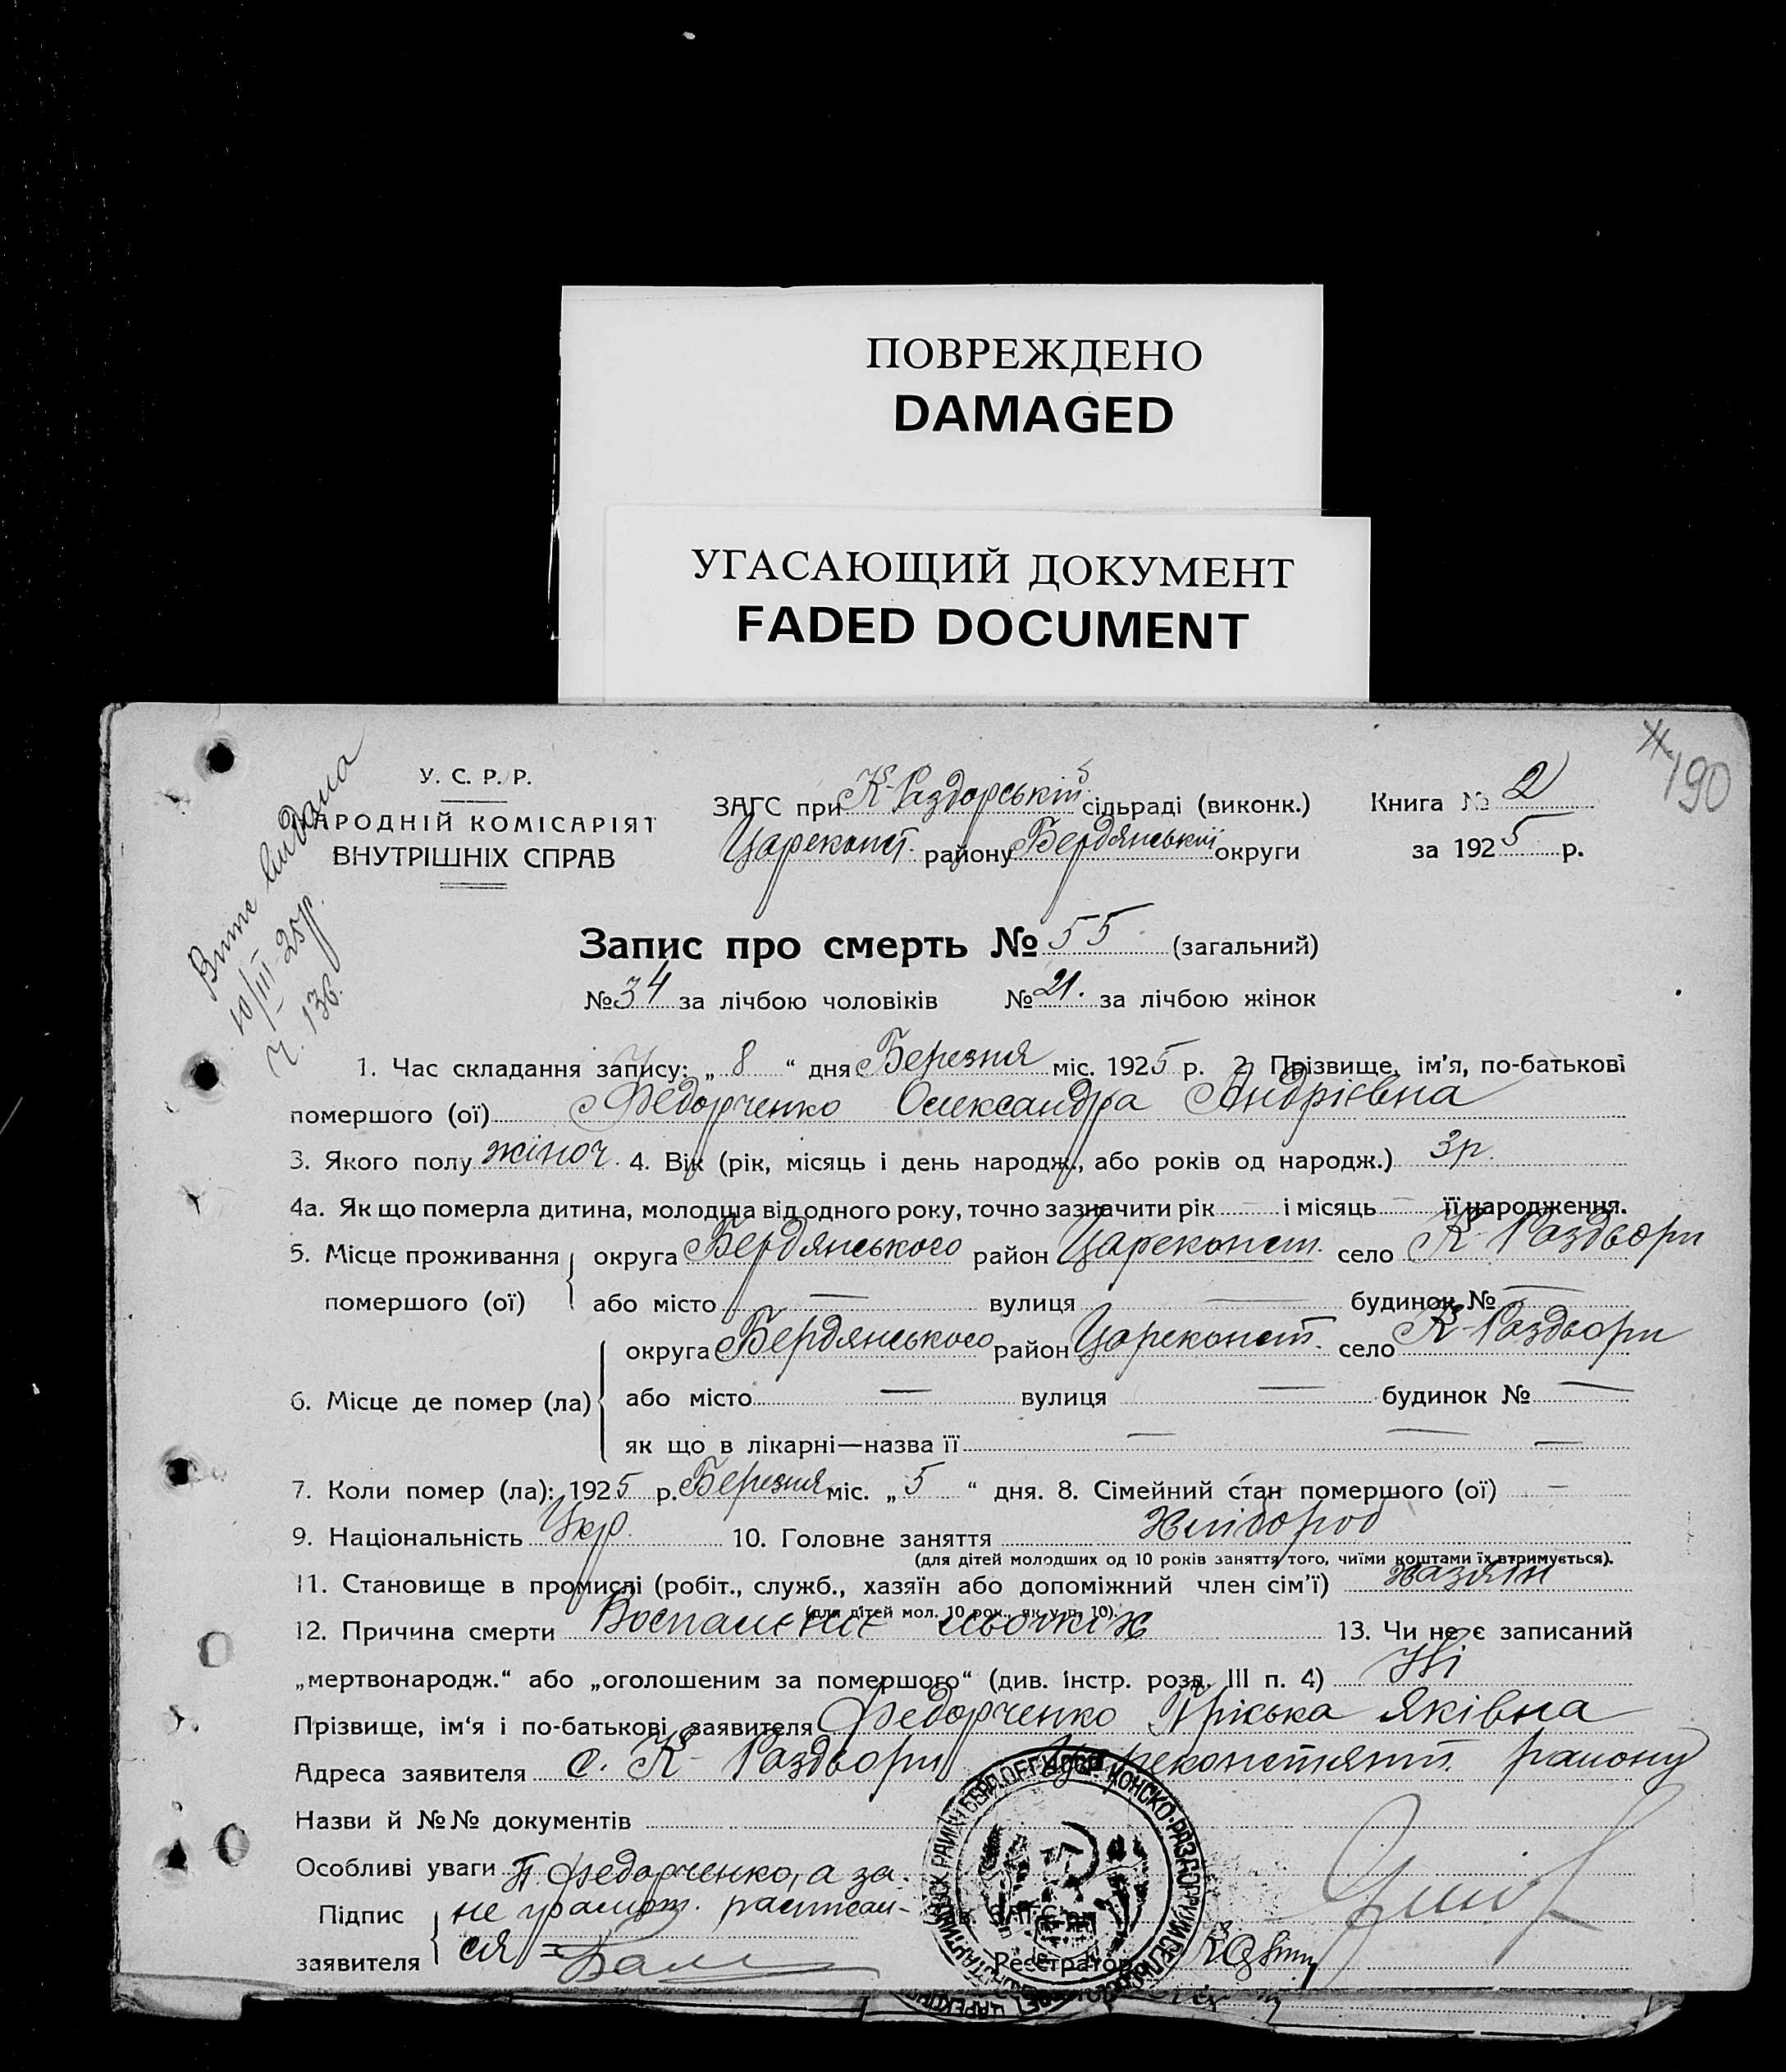 ПОВРЕЖДЕНО
DAMAGED
УГАСАЮЩИЙ ДОКУМЕНТ
FADED DOCUMENT
190
Випис видана
10/III 25р.
Ч. 136.
У. С. Р. Р.
НАРОДНІЙ КОМІСАРІЯТ
ВНУТРІШНІХ СПРАВ
ЗАГС при К-Раздорській сільраді (виконк.)
Цареконст. району Бердянської округи
Книга № 2
за 1925 р.
Запис про смерть № 55 (загальний)
№ 34 за лічбою чоловіків № 21. за лічбою жінок
1. Час складання запису: „ 8 “ дня Березня міс. 1925 р. 2. Прізвище, ім'я, по-батькові
помершого (ої) Федорченко Олександра Андріївна
3. Якого полу жіноч. 4. Вік (рік, місяць і день народж., або років од народж.) 3р.
4а. Як що померла дитина, молодша від одного року, точно зазначити рік — і місяць — її народження.
5. Місце проживання помершого (ої) округа Бердянського район Цареконст. село К-Раздори
або місто — вулиця — будинок № —
6. Місце де помер (ла) округа Бердянського район Цареконст. село К-Раздори
або місто — вулиця — будинок № —
як що в лікарні—назва її — — —
7. Коли помер (ла): 1925 р. Березня міс. „ 5 “ дня. 8. Сімейний стан помершого (ої) —
9. Національність Укр. 10. Головне заняття Хлібороб
(для дітей молодших од 10 років заняття того, чиїми коштами їх втримується).
11. Становище в промислі (робіт., служб., хазяїн або допоміжний член сім'ї) хазяїн
(для дітей мол. 10 рок., як у п. 10).
12. Причина смерти Воспаленіє 13. Чи не є записаний
„мертвонародж.“ або „оголошеним за помершого“ (див. інстр. розд. III п. 4) Ні
Прізвище, ім'я і по-батькові заявителя Федорченко Пріська Яківна
Адреса заявителя с. К-Раздори Цареконстянт. району
Назви й №№ документів
Особливі уваги П. Федорченко, а за
Підпис заявителя не грамот. расписал-
ся
Реєстратор